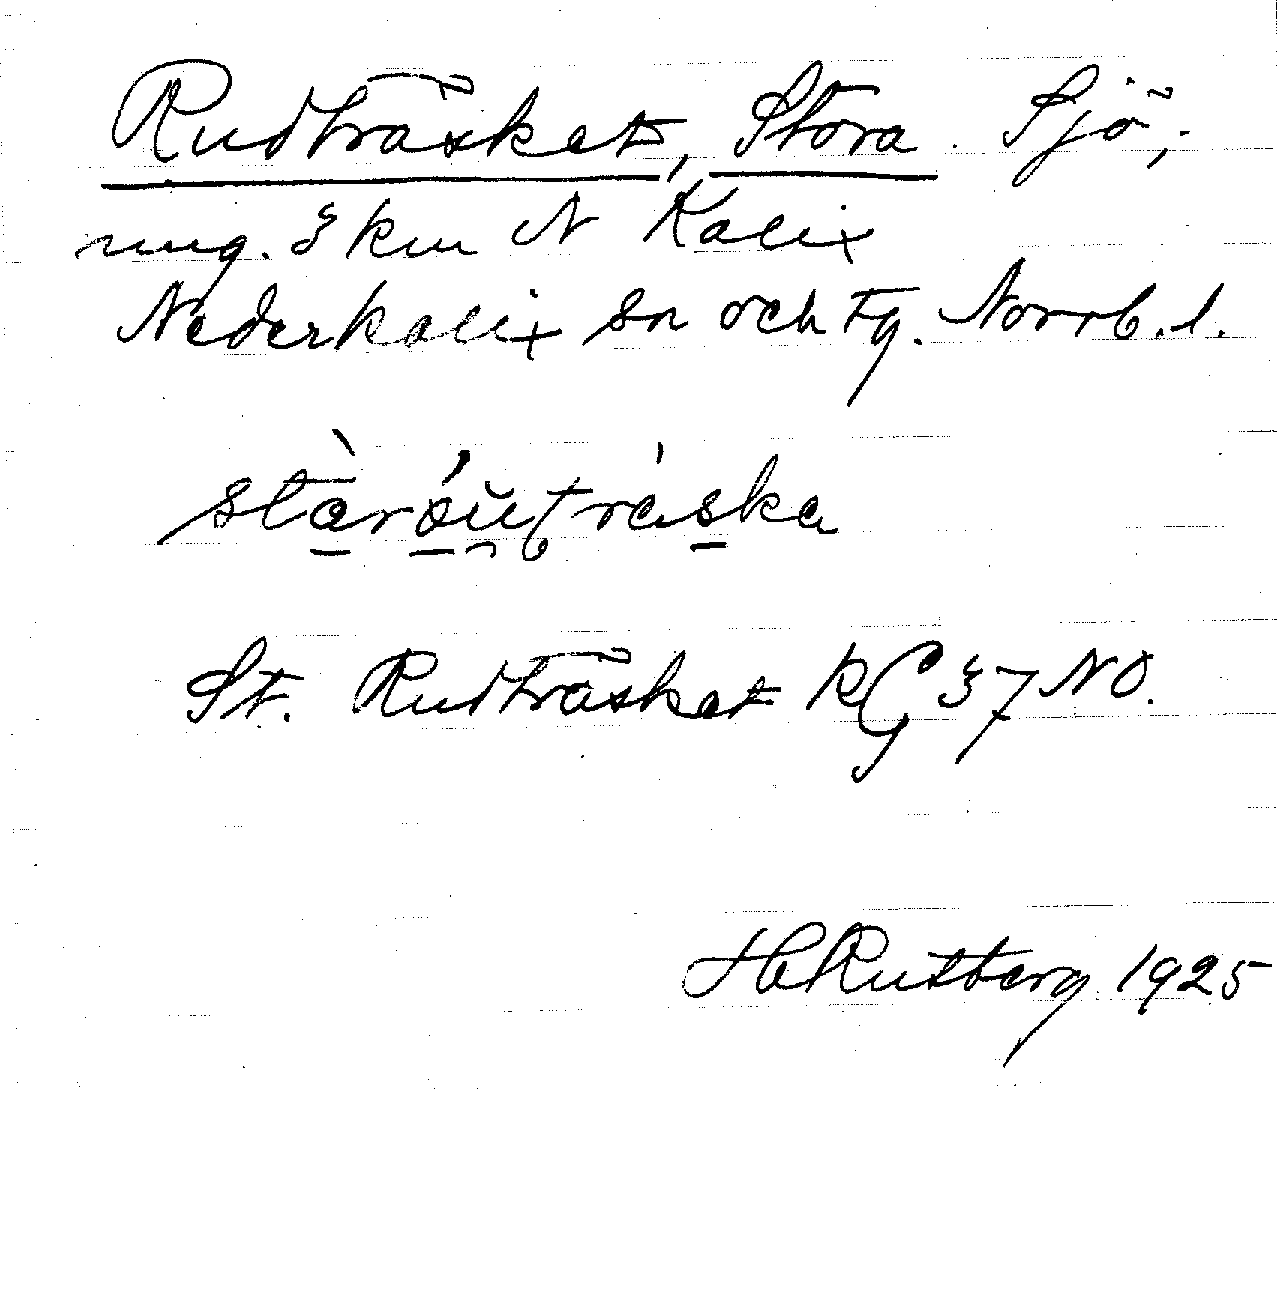 Rudträsket, Stora. Sjö,
ung. 3 km N Kalix
Nederkalix sn och tg. Norrb. l.
St. Rudträsket KG 37 NO.
H Rutberg 1925